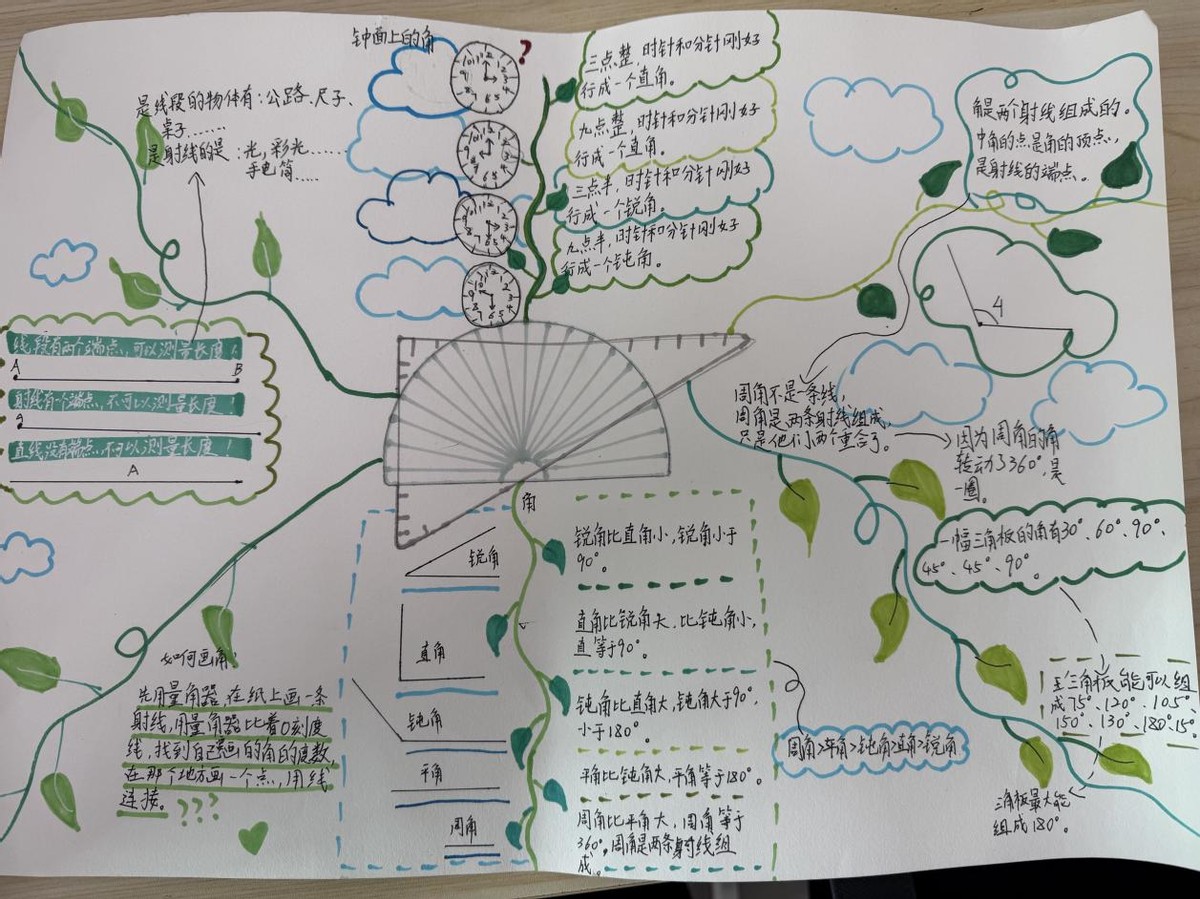 钟面上的角
?
是线段的物体有:公路、尺子、
桌子……
是射线的是:光,彩光……
手电筒……
三点整,时针和分针刚好
行成一个直角。
九点整,时针和分针刚好
行成一个直角。
三点半,时针和分针刚好
行成一个锐角。
九点半,时针和分针刚好
行成一个钝角。
角是两个射线组成的。
中角的点是角的顶点,
是射线的端点。
4
线段有两个端点,可以测量长度!
A B
射线有一个端点,不可以测量长度!
直线没有端点,不可以测量长度!
A
周角不是一条线,
周角是两条射线组成,
只是他们两个重合了。
因为周角的角
转动了360°,是
一圈。
一幅三角板的角有30°、60°、90°、
45°、45°、90°。
三角板能可以组
成75°、120°、105°、
150°、130°、180°、15°。
三角板最大能
组成180°。
角
锐角
直角
钝角
平角
周角
锐角比直角小,锐角小于
90°。
直角比锐角大,比钝角小,
直等于90°。
钝角比直角大,钝角大于90°,
小于180°。
平角比钝角大,平角等于180°。
周角比平角大,周角等于
360°,周角是两条射线组
成。
周角>平角>钝角>直角>锐角
如何画角:
先用量角器,在纸上画一条
射线,用量角器比着0刻度
线,找到自己画的角的度数,
在那个地方画一个点,用线
连接。
???